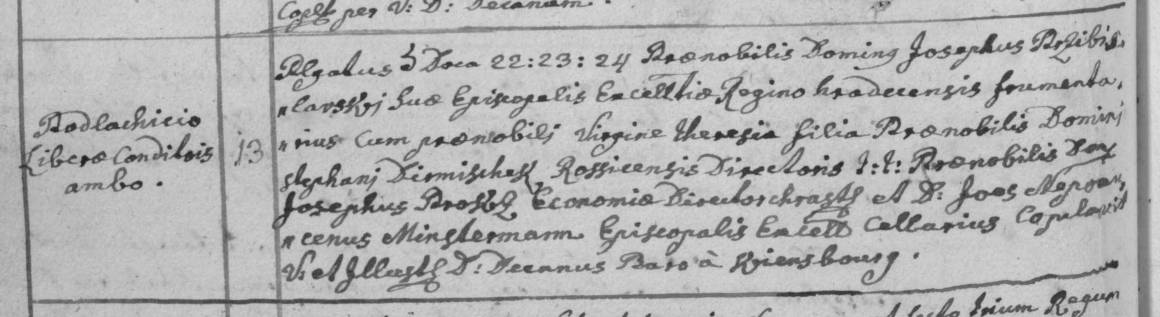 Copłt per V: D: Decanum.
Podlachicio
Liberæ Conditois
ambo.
13
Plgatus ẽ Doca 22:23:24 Prænobilis Doming Josephus Przibis„
„lavskj Suæ Episcopalis Excelltiæ Regino hradecensis frumenta„
„rius Cum prænobilj Virgine theresia filia Prænobilis Dominj
stephanj Dirmischek Rossicensis Directoris T:T: Prænobilis
Josephus Œconomiæ Director et D: Joes Nepom„
„cenus Minstermann Episcopalis Excell Cellarius Copulavit
V: et Illustř D: Decanus Baro à Wiensbourg.
trium Regum